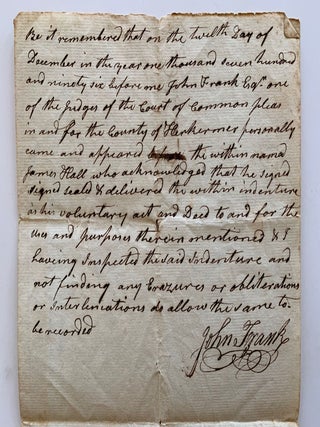 Be it remembered that on the twelfth Day of
December in the year one thousand seven hundred
and ninety six before one John Frank Esqr. one
of the Judges of the Court of Common pleas
in and for the County of Herkermer personally
came and appeared the within named
James Hall who acknowledged that he signed
signed sealed & delivered the within indenture
as his voluntary act and Deed to and for the
uses and purposes therein mentioned & I
having Inspected the said Indenture and
not finding any Erazures or obliterations
or Interlineations do allow the same to
be recorded
John Frank